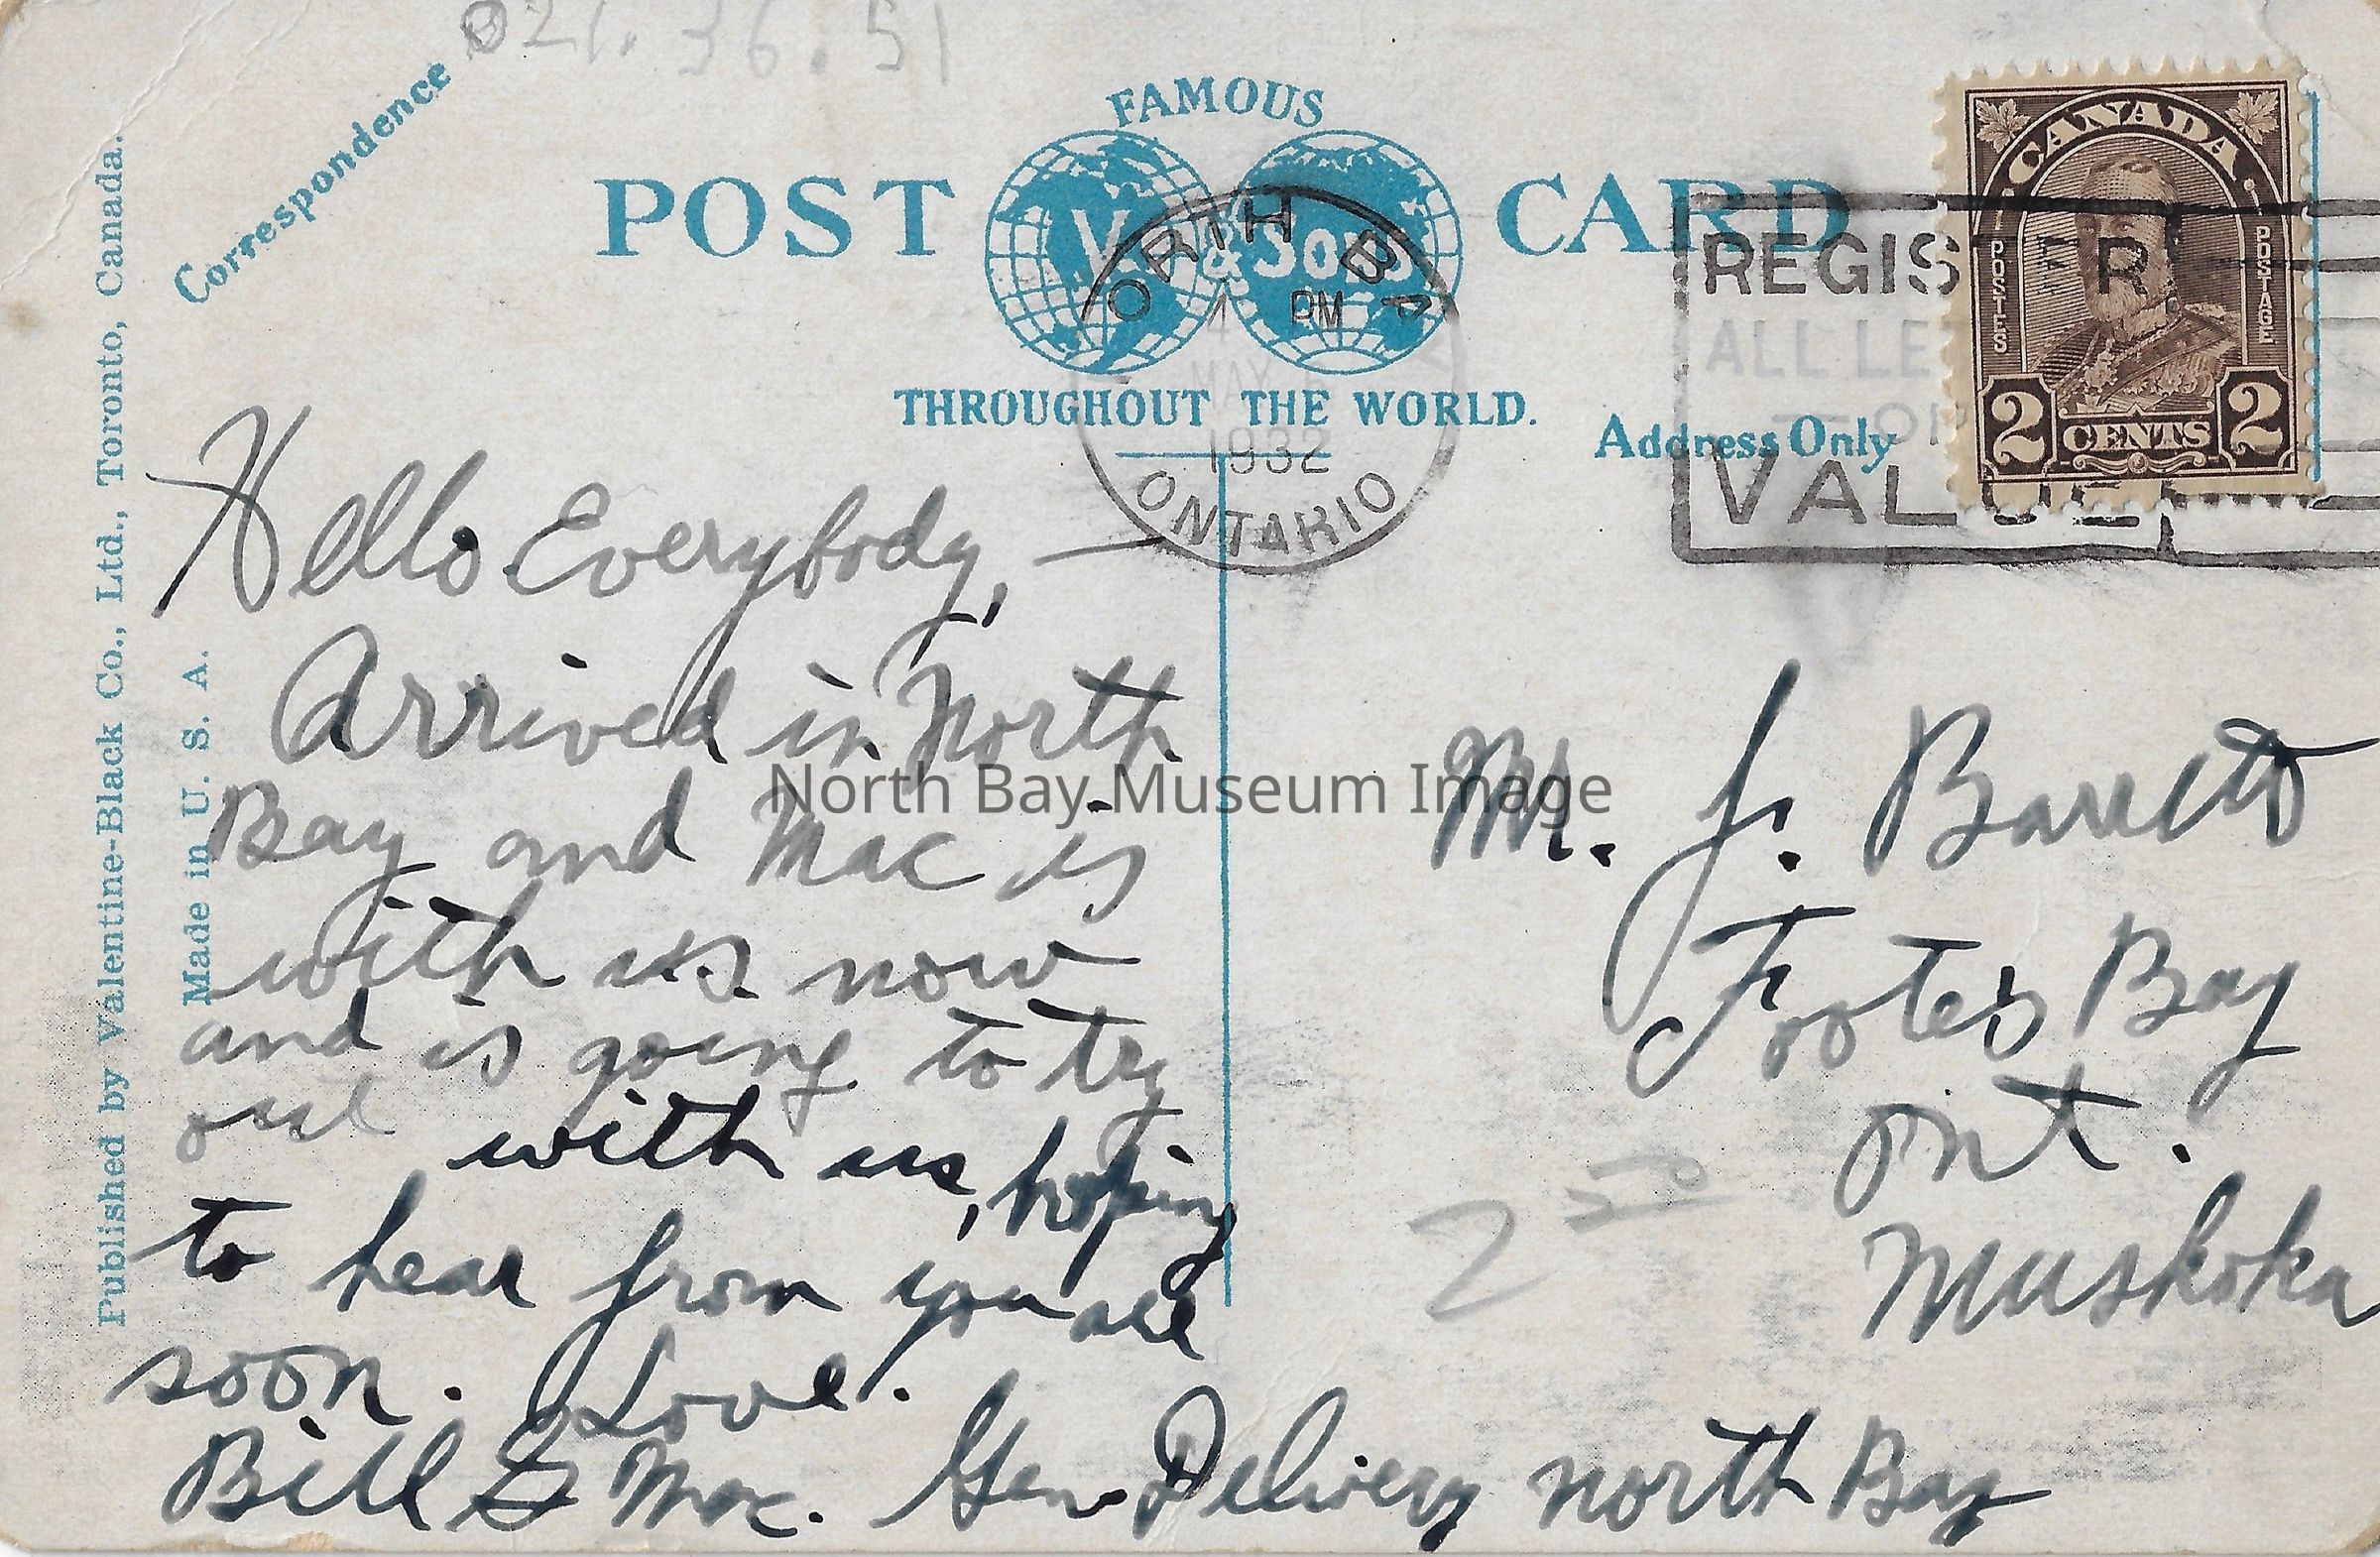 021.36.51
Correspondence
FAMOUS
POST V. & Sons CARD
THROUGHOUT THE WORLD.
Address Only
Published by Valentine-Black Co., Ltd., Toronto, Canada.
Made in U. S. A.
CANADA
POSTES POSTAGE
2 CENTS 2
ORTH BA
4 PM
MAY
1932
ONTARIO
REGISTER
ALL LE
OF
VALUE
Hello Everybody, —
Arrived in North
Bay and Mac is
with us now
and is going to try
out with us, hoping
to hear from you all
soon. Love.
Bill & Mac. Gen Delivery North Bay
Mr. J. Barrett
Footes Bay
Ont.
Muskoka
2 50
North Bay Museum Image